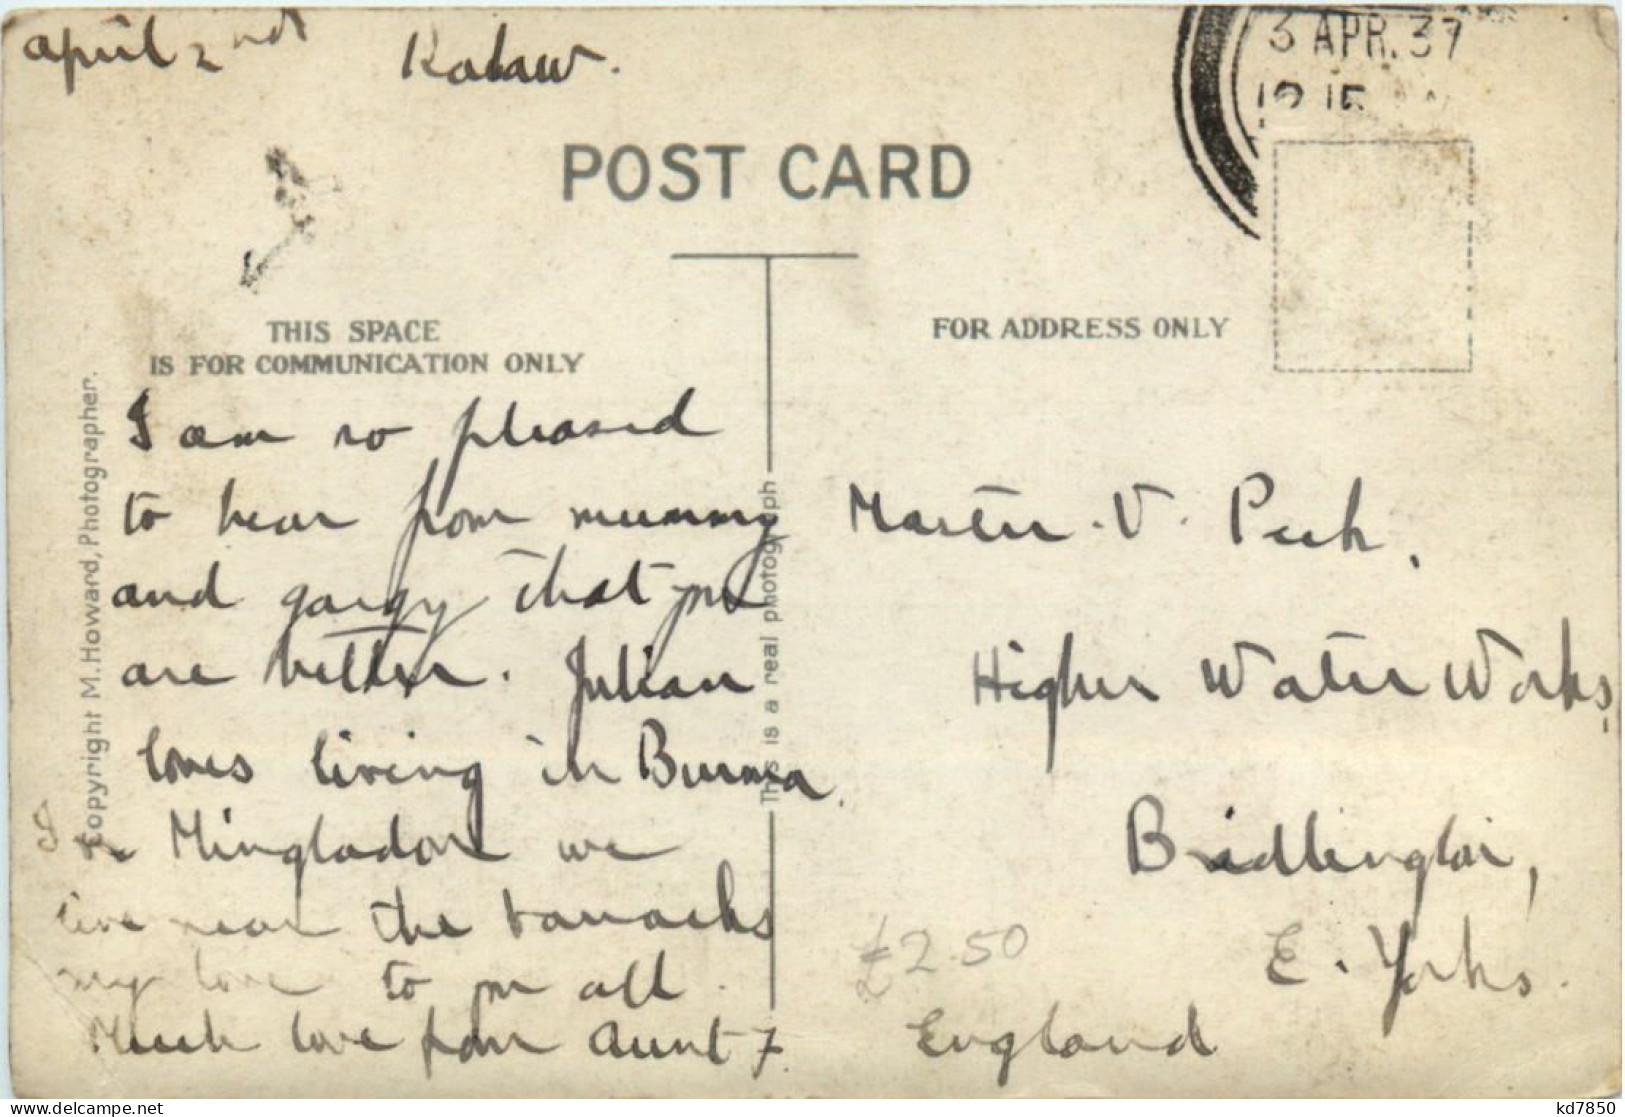 April 2nd Kalaw.
3 APR. 37
12 15
POST CARD
THIS SPACE
IS FOR COMMUNICATION ONLY
FOR ADDRESS ONLY
Copyright M. Howard, Photographer.
This is a real photograph
I am so pleased
to hear from mummy
and that you
are better. Julian
loves living in Burma.
In Mingladon we
live near the barracks
my love to you all.
Much love from Aunt F.
Master. V. Peek,
Higher Water Works,
Bridlington,
E. Yorks.
England
£2.50
kd7850